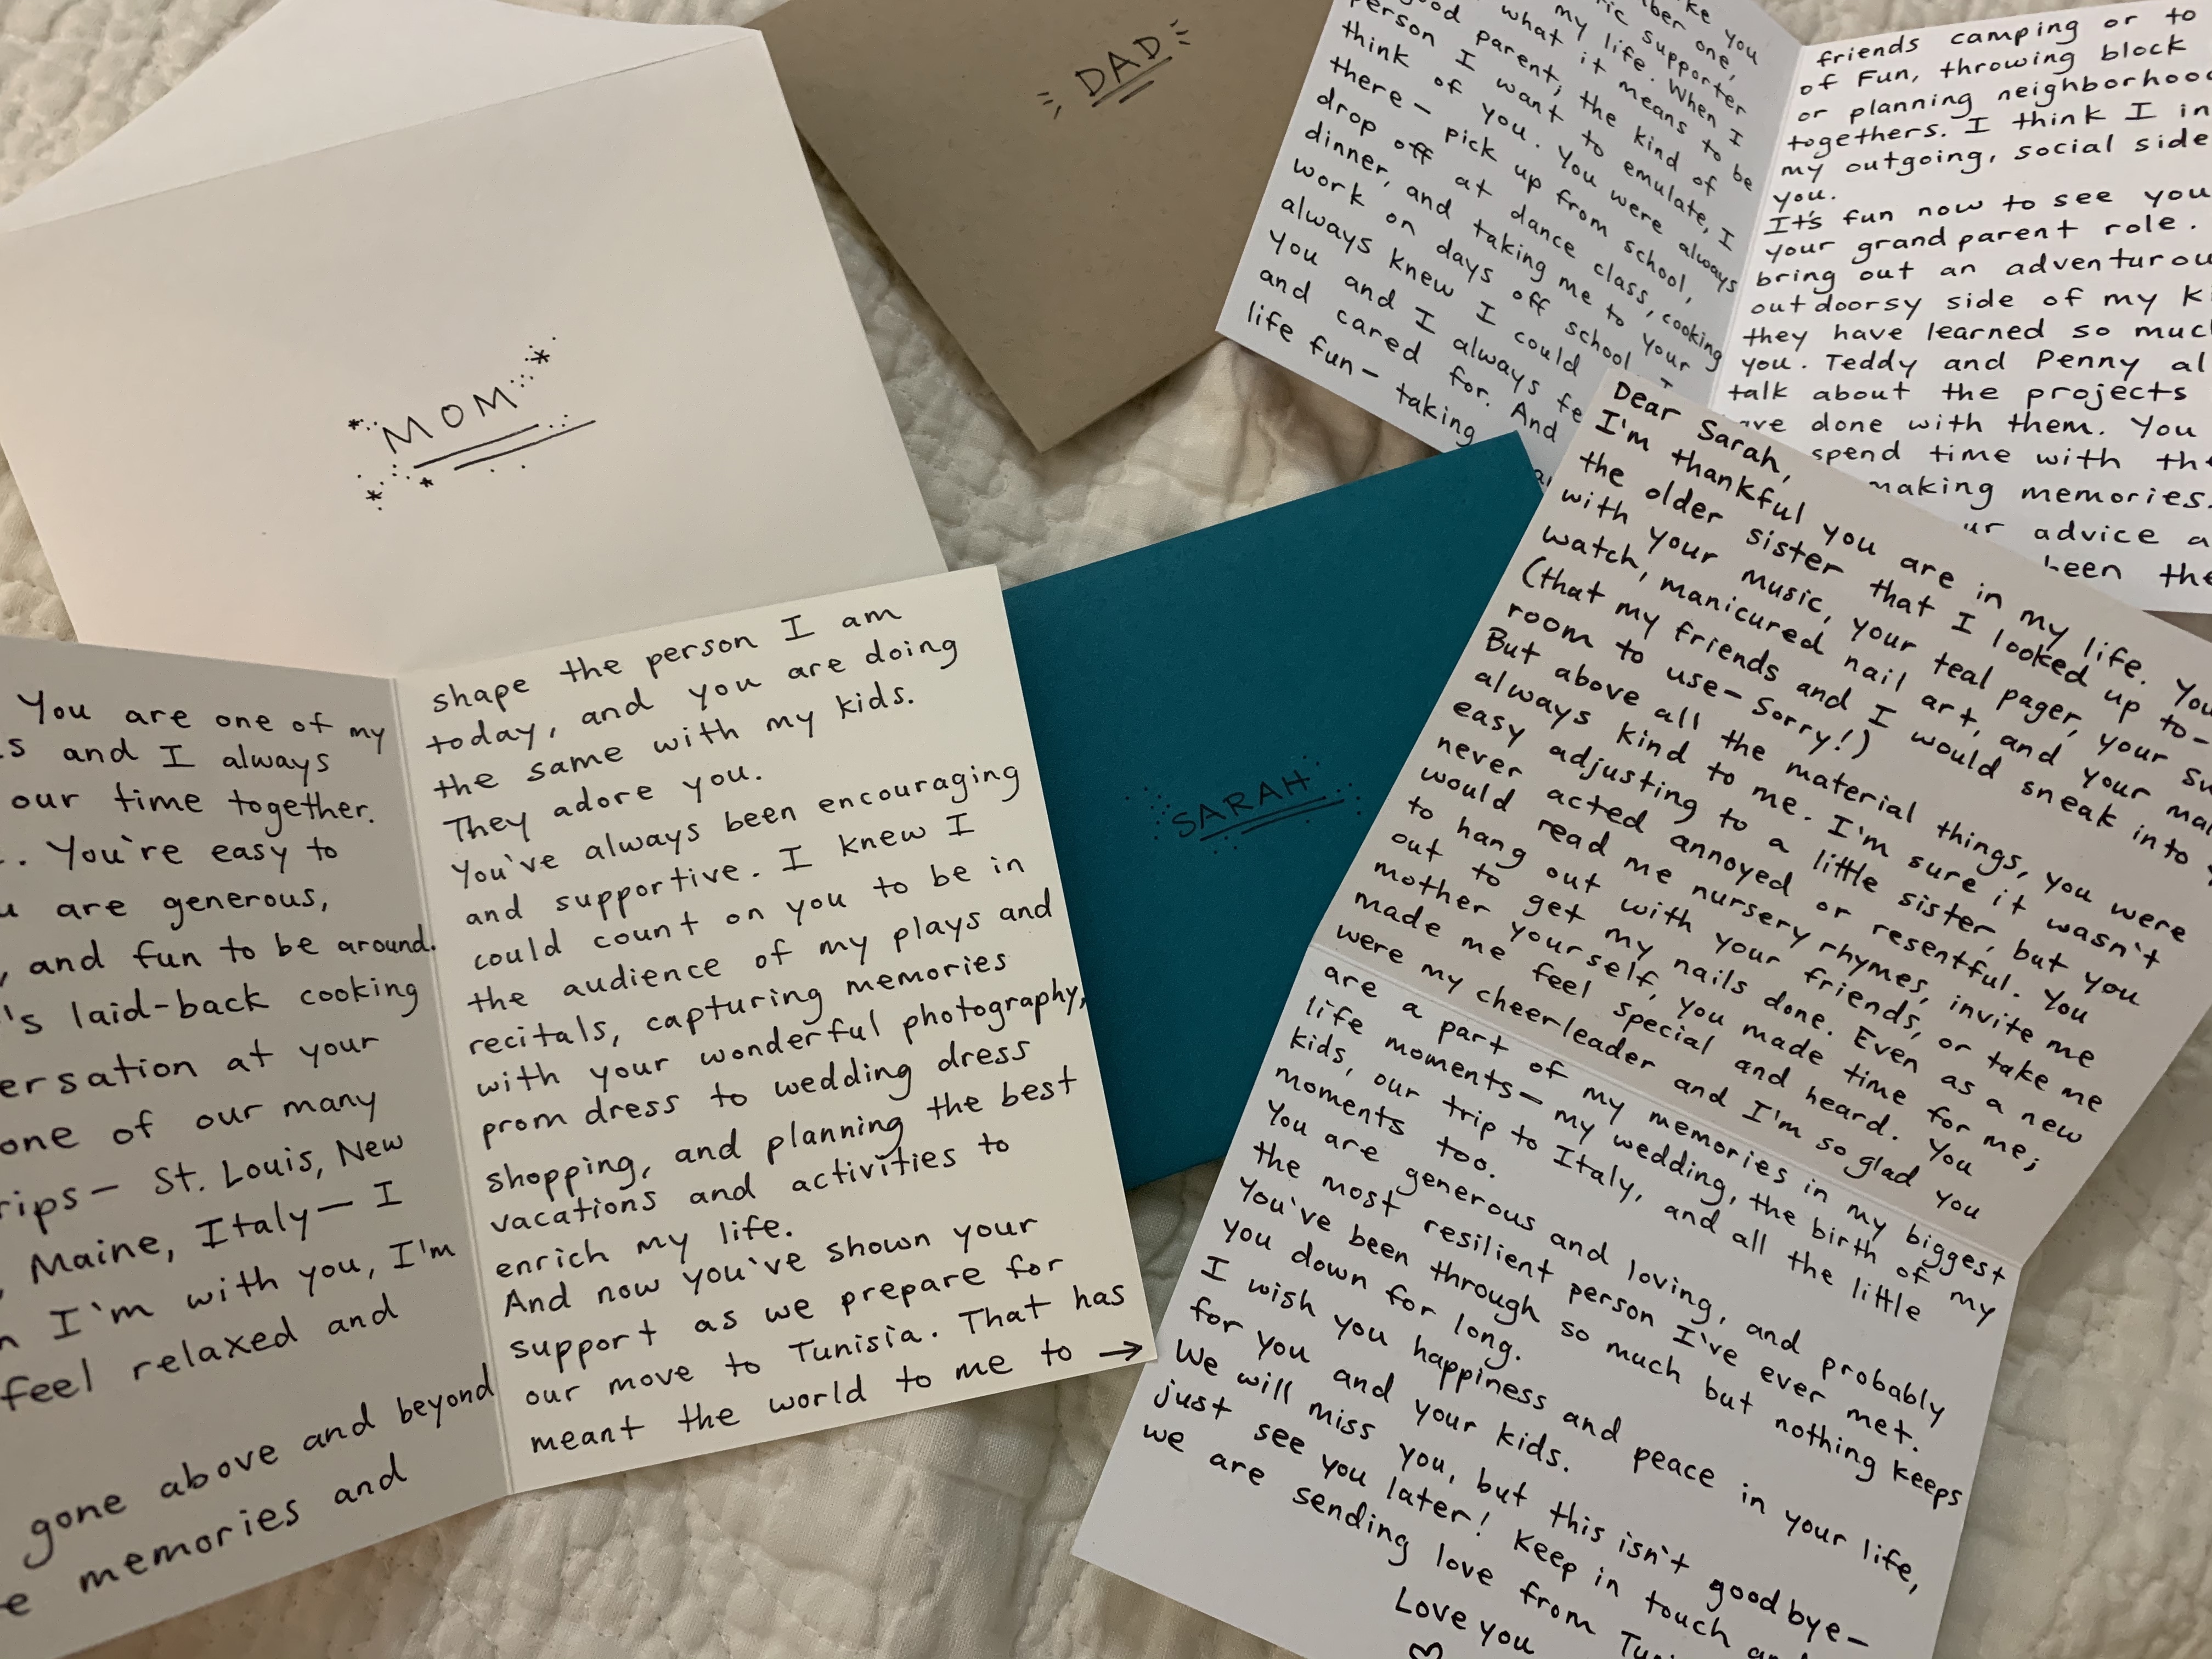 MOM
DAD
SARAH
You are one of my
and I always
our time together.
You're easy to
are generous,
, and fun to be around.
laid-back cooking
at your
one of our many
St. Louis, New
, Maine, Italy— I
I'm with you, I'm
feel relaxed and
gone above and beyond
memories and
shape the person I am
today, and you are doing
the same with my kids.
They adore you.
You've always been encouraging
and supportive. I knew I
could count on you to be in
the audience of my plays and
recitals, capturing memories
with your wonderful photography,
prom dress to wedding dress
shopping, and planning the best
vacations and activities to
enrich my life.
And now you've shown your
support as we prepare for
our move to Tunisia. That has
meant the world to me to →
you
one,
supporter
my life. When I
what it means to be
parent, the kind of
person I want to emulate, I
think of you. You were always
there— pick up from school,
drop off at dance class, cooking
dinner, and taking me to your
work on days off school. I
always knew I could
you and I always
and cared for. And
life fun— taking
friends camping or to
of Fun, throwing block
or planning
togethers. I think I
my outgoing, social side
you.
It's fun now to see you
your grandparent role.
bring out an
outdoorsy side of my
they have learned so
you. Teddy and Penny
talk about the projects
done with them. You
spend time with
making memories.
advice
been
Dear Sarah,
I'm thankful you are in my life. You
the older sister that I looked up to—
with your music, your teal pager, your
watch, manicured nail art, and your
(that my friends and I would sneak into
room to use— Sorry!)
But above all the material things, you were
always kind to me. I'm sure it wasn't
easy adjusting to a little sister, but you
never acted annoyed or resentful. You
would read me nursery rhymes, invite me
to hang out with your friends, or take me
out to get my nails done. Even as a new
mother yourself, you made time for me;
made me feel special and heard. You
were my cheerleader and I'm so glad you
are a part of my memories in my biggest
life moments— my wedding, the birth of my
kids, our trip to Italy, and all the little
moments too.
You are generous and loving, and probably
the most resilient person I've ever met.
You've been through so much but nothing keeps
you down for long.
I wish you happiness and peace in your life,
for you and your kids.
We will miss you, but this isn't goodbye—
just see you later! Keep in touch
we are sending love from
Love you